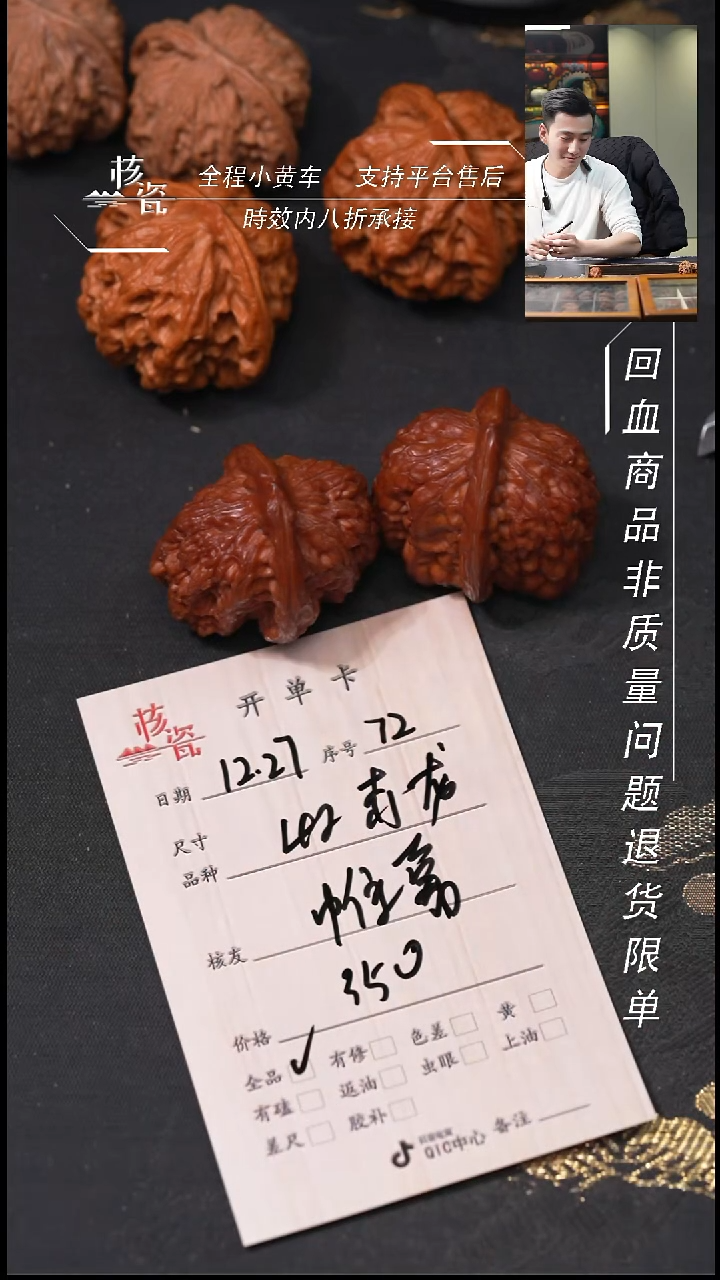 核瓷
全程小黄车 支持平台售后
時效内八折承接
回血商品非质量问题退货限单
核瓷
开单卡
日期 12.27 序号 72
尺寸
品种
核友
价格 350
全品 ✓ 有修 色差 黄
有磕 返油 虫眼 上油
差尺 胶补
QIC中心 备注